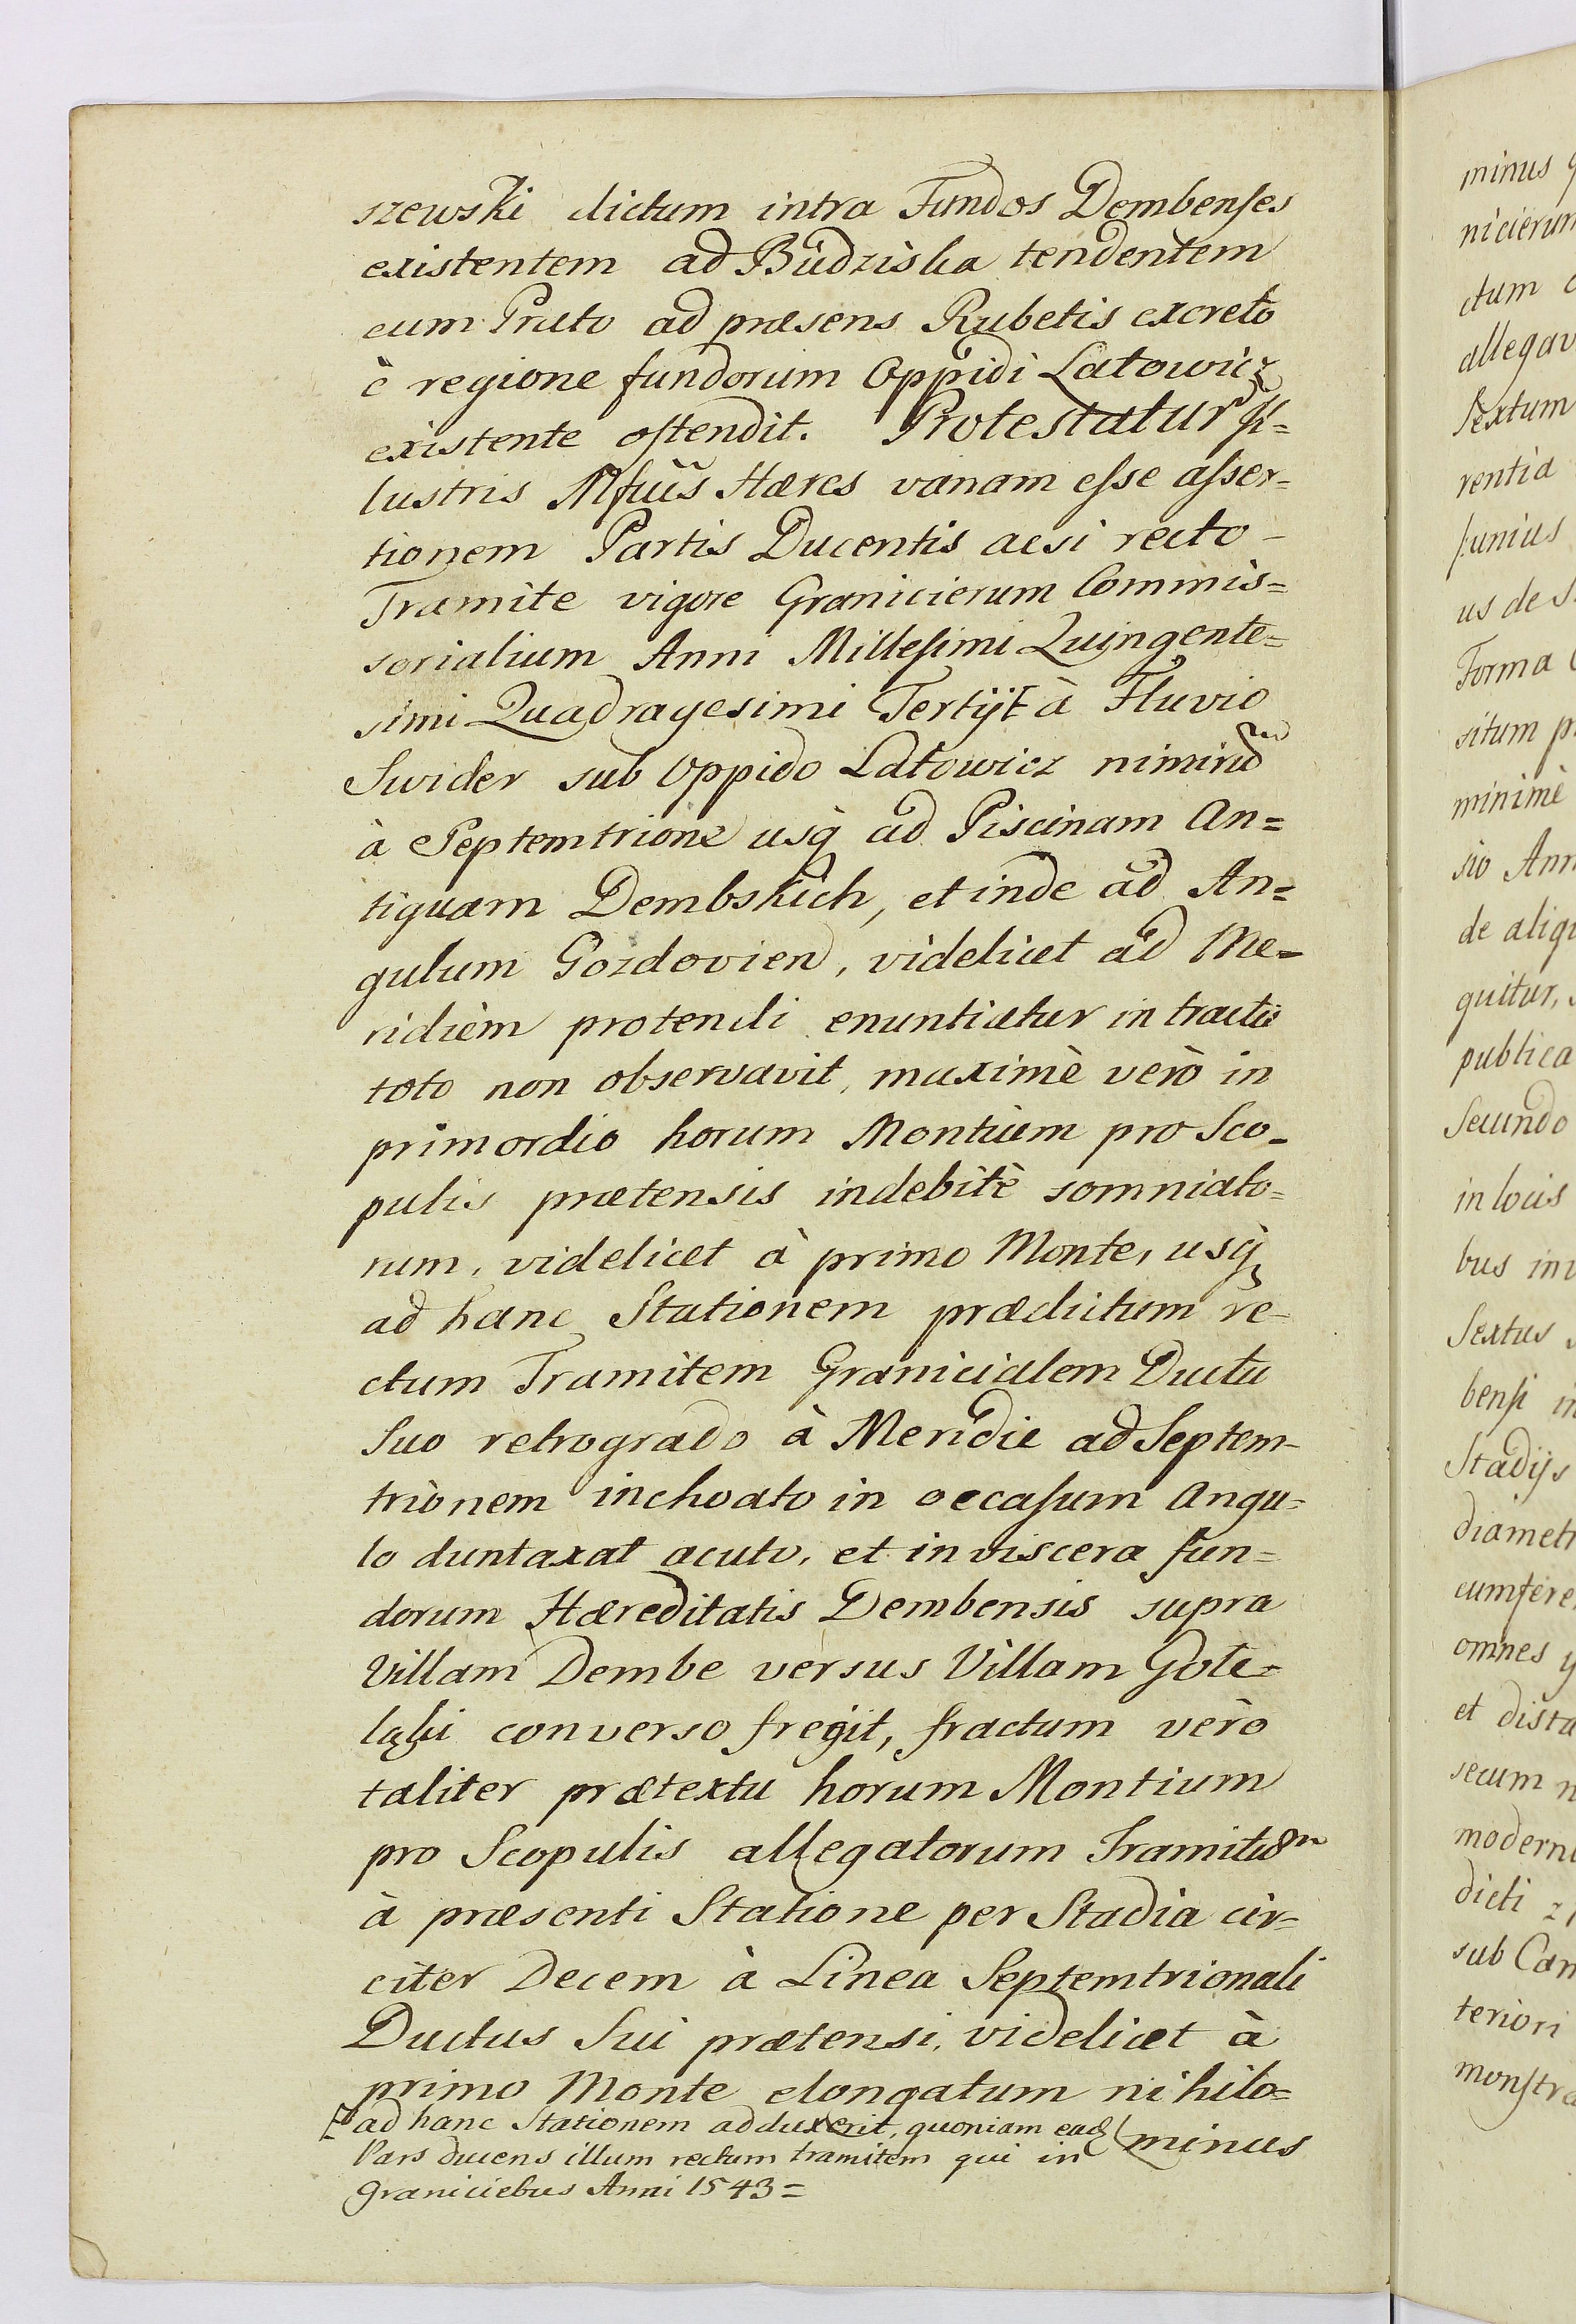 szewski dictum intra Fundos Dembenses
existentem ad Budziska tendentem
cum Prato ad præsens Rubetis excreto
è regione fundorum Oppidi Latowicz
existente ostendit. Protestatur Il=
lustris Mfũs Hæres vanam esse asser=
tionem Partis Ducentis acsi recto -
Tramite vigore Granicierum Commis=
sorialium Anni Millesimi Quingente=
simi Quadragesimi Tertij à Fluvio
Swider sub Oppido Latowicz nimirũ
à Septemtrione usq̃ ad Piscinam An=
tiquam Dembskich, et inde ad An=
gulum Gozdovien, videlicet ad Me=
ridiem protendi enuntiatur in tractu
toto non observavit, maximè verò in
primordio horum Montium pro Sco-
pulis prætensis indebitè somniato=
rum, videlicet à primo Monte, usq̃
ad hanc Stationem prædictum re-
ctum Tramitem Granicialem Ductu
Suo retrogrado à Meridie ad Septem-
trionem inchoato in occasum Angu=
lo duntaxat acuto, et in viscera fun=
dorum Hæreditatis Dembensis supra
Villam Dembe versus Villam Gote=
converso fregit, fractum verò
taliter prætextu horum Montium
pro Scopulis allegatorum Tramitem
à præsenti Statione per Stadia cir=
citer Decem à Linea Septemtrionali
Ductus Sui prætensi, videlicet à
primo Monte elongatum nihilo=
ad hanc Stationem adduxerit, quoniam ead minus
Pars ducens illum rectum tramitem qui in
Graniciebus Anni 1543=
minus
ctum
allegav
Sextum
rentia
Junius
us de S
Forma
situm p
minimè
sio Ann
de aliqu
quitur,
publica
Secundo
in locis
bus in
Sextus
bensi in
Stadijs
diamet
cumfere
omnes
et dista
secum n
moderni
dicti z
sub Can
teriori
monstra